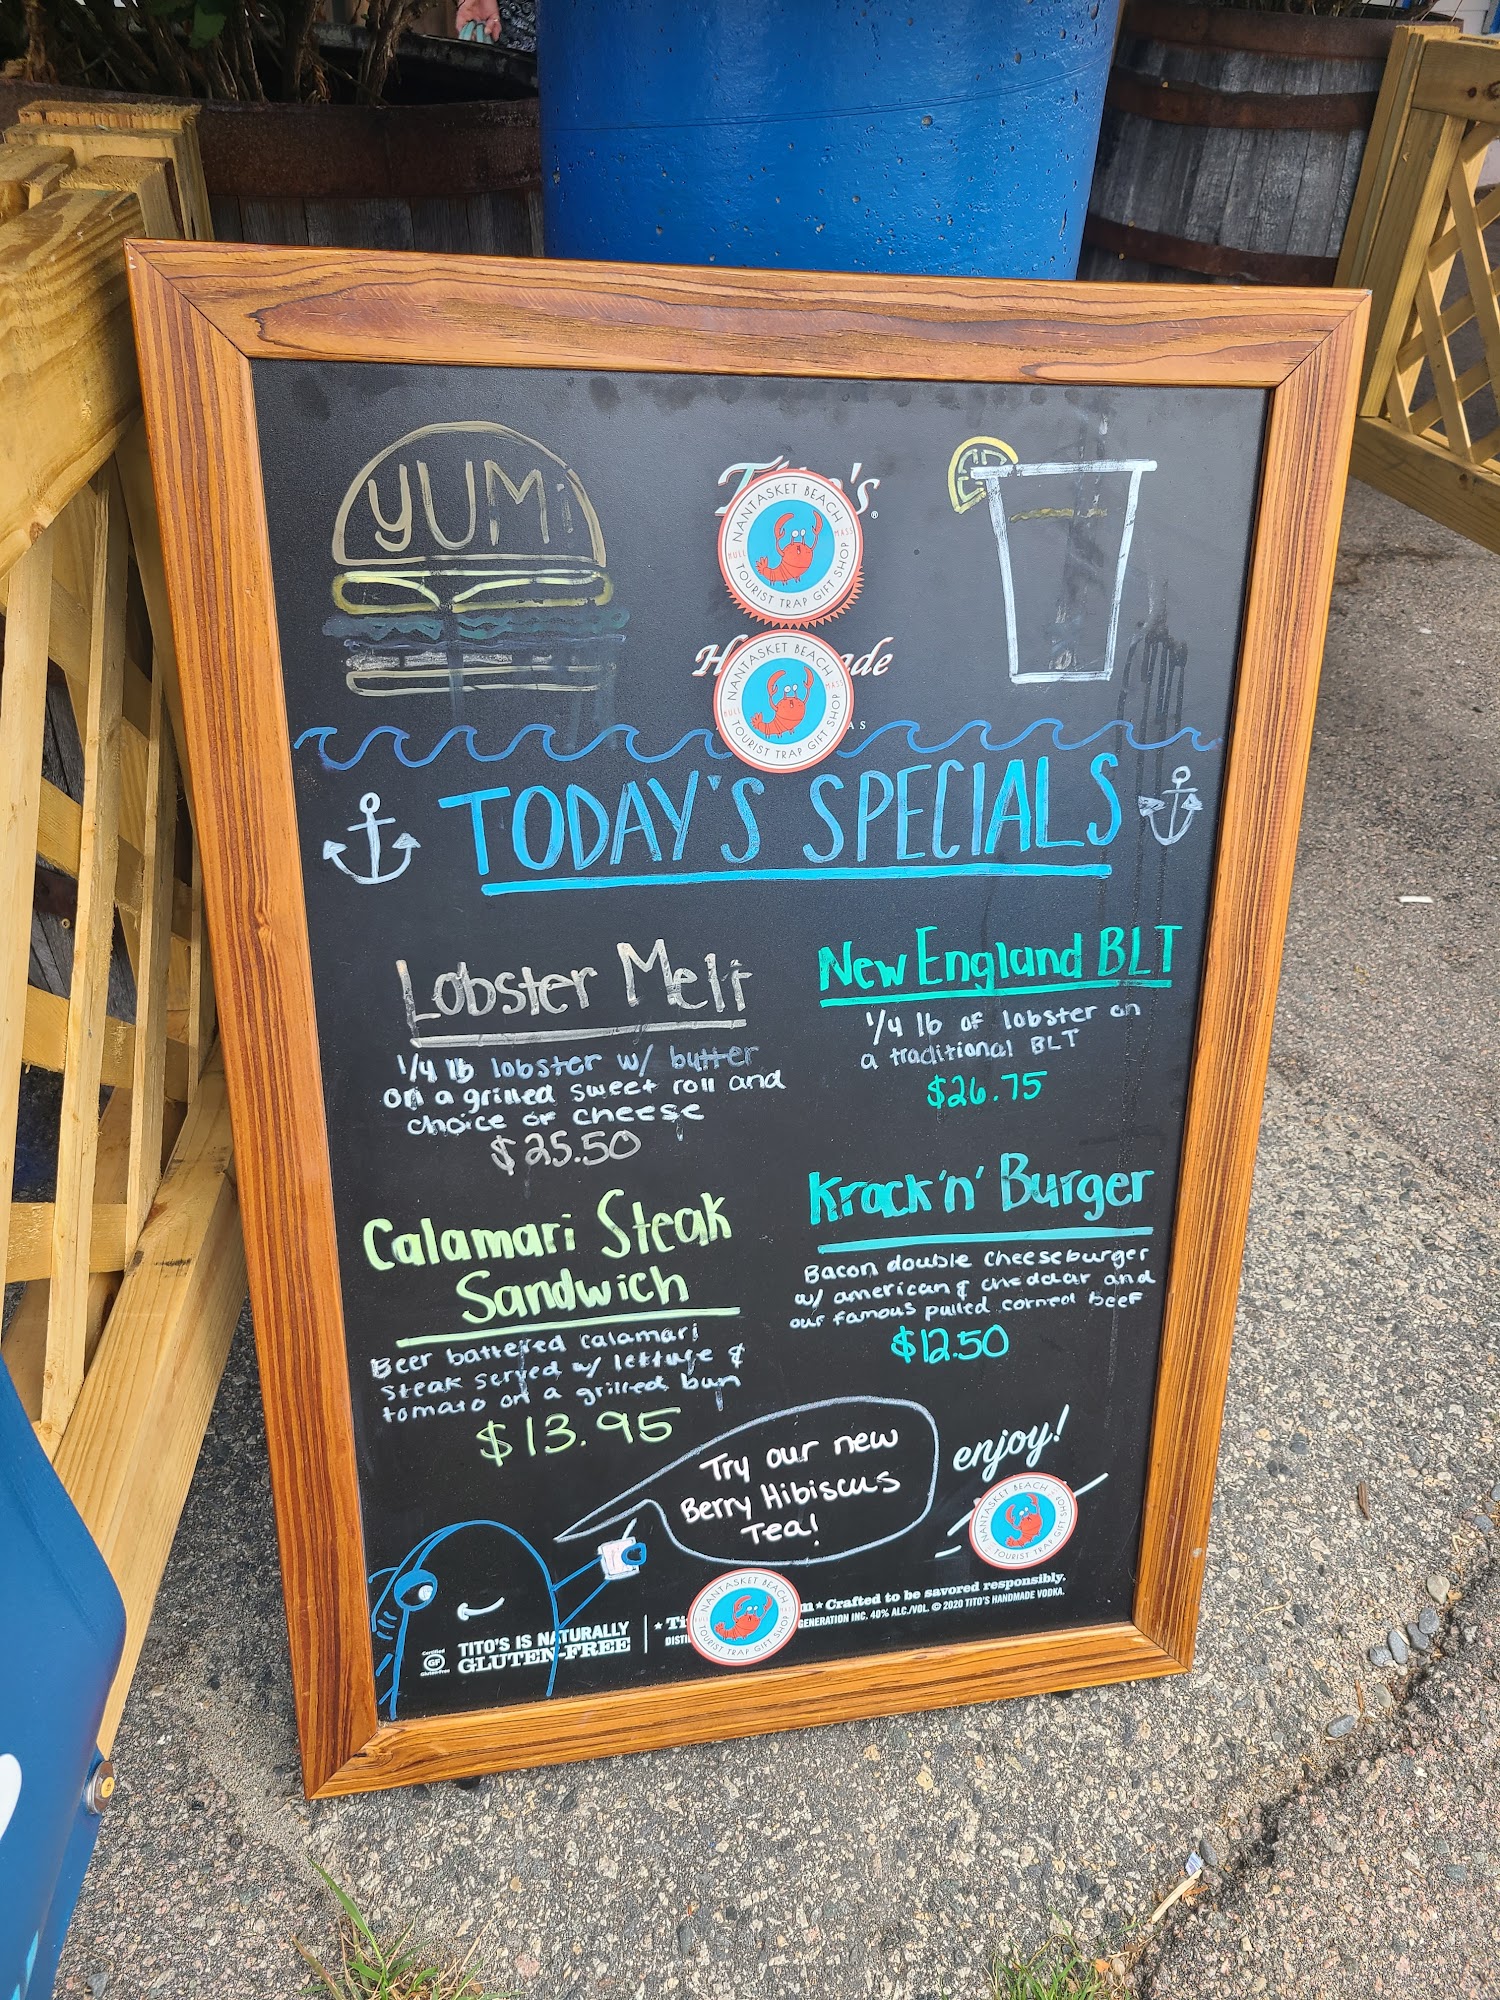 YUM!
NANTASKET BEACH
HULL MASS
TOURIST TRAP GIFT SHOP
NANTASKET BEACH
HULL MASS
TOURIST TRAP GIFT SHOP
TODAY'S SPECIALS
Lobster Melt
1/4 lb lobster w/ butter
on a grilled sweet roll and
choice of cheese
$25.50
New England BLT
1/4 lb of lobster on
a traditional BLT
$26.75
Calamari Steak
Sandwich
Beer battered calamari
steak served w/ lettuce &
tomato on a grilled bun
$13.95
Krack 'n' Burger
Bacon double cheeseburger
w/ american & cheddar and
our famous pulled corned beef
$12.50
Try our new
Berry Hibiscus
Tea!
enjoy!
NANTASKET BEACH
TOURIST TRAP GIFT SHOP
NANTASKET BEACH
TOURIST TRAP GIFT SHOP
Certified
GF
Gluten-Free
TITO'S IS NATURALLY
GLUTEN-FREE
Crafted to be savored responsibly.
INC. 40% ALC./VOL. © 2020 TITO'S HANDMADE VODKA.